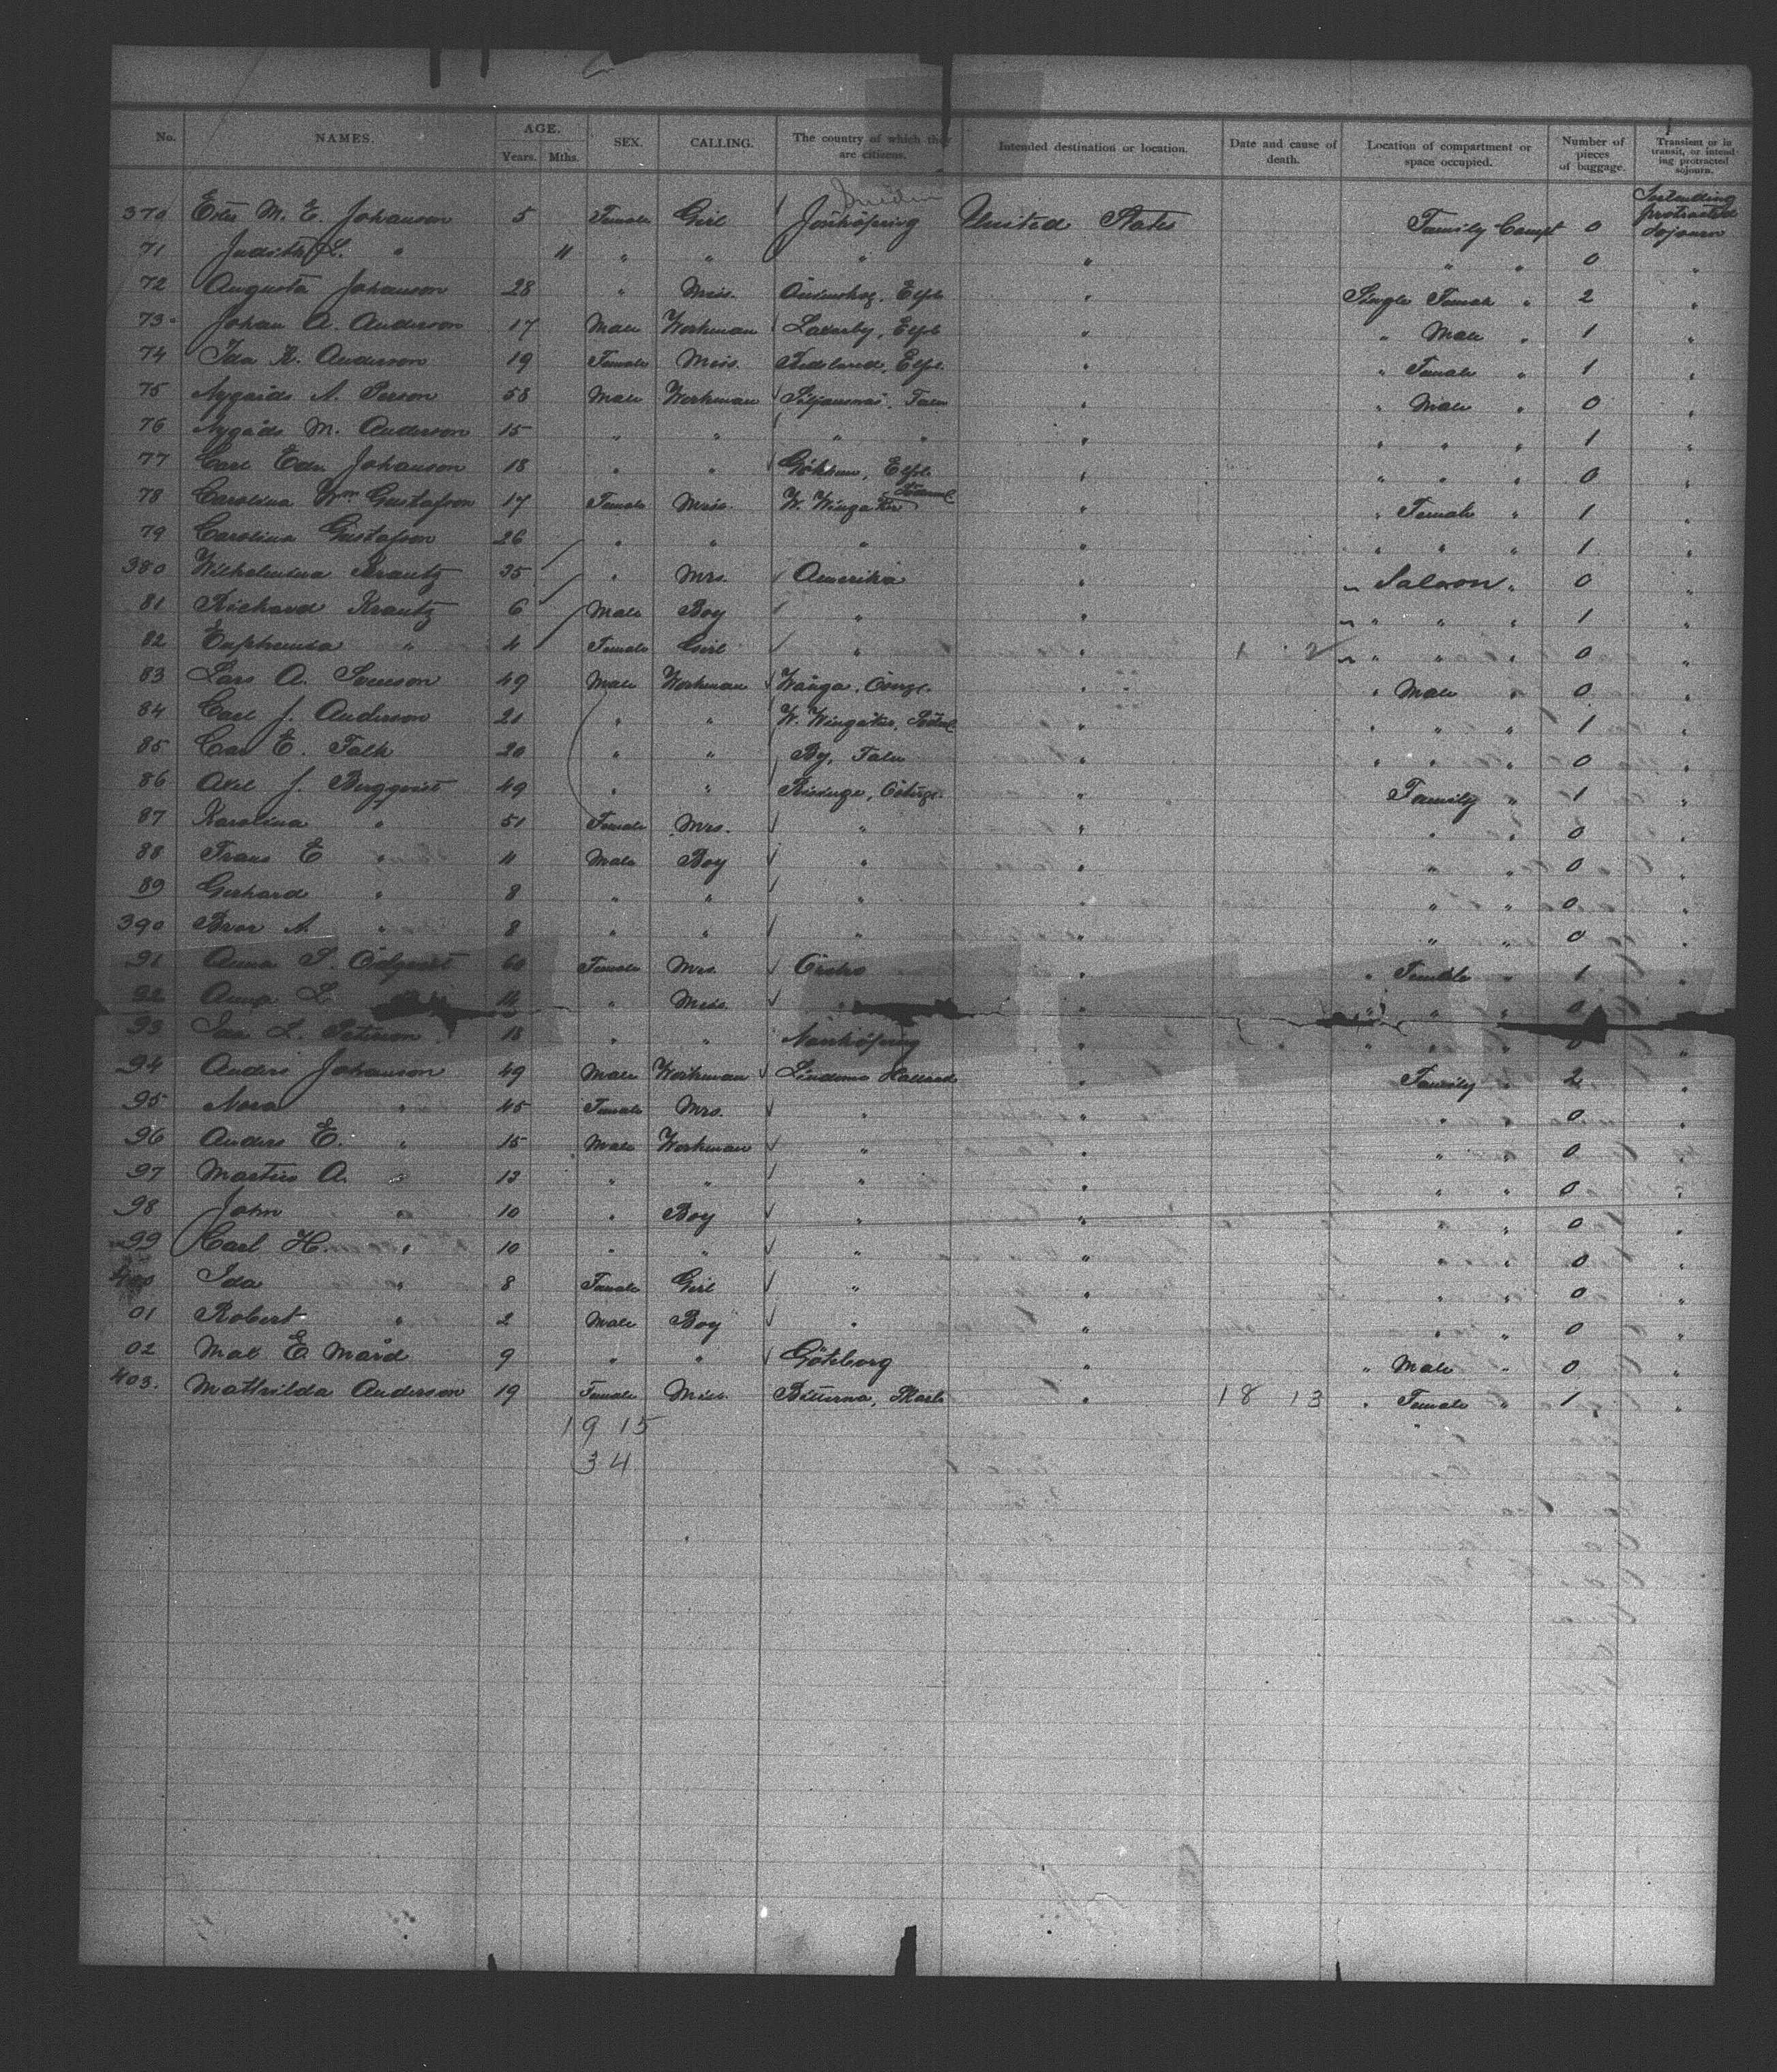 No. NAMES. AGE. Years. Mths. SEX. CALLING. The country of which they are citizens. Intended destination or location. Date and cause of death. Location of compartment or space occupied. Number of pieces of baggage. Transient or in transit, or intending protracted sojourn.
Sweden
370 Ester M. E. Johanson 5 Female Girl Jönköping United States Family Compt 0 Intending protracted Sojourn
71 Judith L. " 11 " " " " " " 0 "
72 Augusta Johanson 28 " Miss. Elfsb " Single Female " 2 "
73 Johan A. Anderson 17 Male Workman Elfsb " " Male " 1 "
74 Ida K. Anderson 19 Female Miss. Elfsb " " Female " 1 "
75 Nygårds A. Person 58 Male Workman Siljansnäs, Falu " " Male " 0 "
76 Nygårds M. Anderson 15 " " " " " " " " 1 "
77 Carl Edv. Johanson 18 " " Elfsb " " " " 0 "
78 Carolina Wm Gustafson 17 Female Miss. W. Wingåker Söderml " " Female " 1 "
79 Carolina Gustafson 26 " " " " " " " 1 "
380 Wilhelmina Krantz 35 " Mrs. Amerika " " Saloon " 0 "
81 Richard Krantz 6 Male Boy " " " " " 1 "
82 Euphemia " 4 Female Girl " " 1 2 " " " 0 "
83 Lars A. Svenson 49 Male Workman Wånga, Östrg. " " Male " 0 "
84 Carl J. Anderson 21 " " W. Wingåker, Söderml " " " " 1 "
85 Carl E. Falk 20 " " By, Falu " " " " 0 "
86 Axel J. Bergqvist 49 " " Risinge, Östrg. " Family " 1 "
87 Karolina " 51 Female Mrs. " " " " 0 "
88 Frans E " 11 Male Boy " " " " 0 "
89 Gerhard " 8 " " " " " " 0 "
390 Bror A. " 8 " " " " " " 0 "
91 Anna S. Ödqvist 60 Female Mrs. Örebro " " Female " 1 "
92 Anna L. " " Miss. " " " " " 0
93 Ida L. Peterson 18 " " Norrköping " " " " 0 "
94 Anders Johanson 49 Male Workman Lindome Halland " Family " 2 "
95 Nora " 45 Female Mrs. " " " " 0 "
96 Anders E. " 15 Male Workman " " " " 0 "
97 Martin A. " 13 " " " " " " 0 "
98 John " 10 " Boy " " " " 0 "
99 Carl H. " 10 " " " " " " 0 "
400 Ida " 8 Female Girl " " " " 0 "
01 Robert " 2 Male Boy " " " " 0 "
02 Max E Mård 9 " " Göteborg " " Male " 0 "
403. Mathilda Anderson 19 Female Miss. Bitterna, Skarb " 18 13 " Female " 1 "
19 15
34